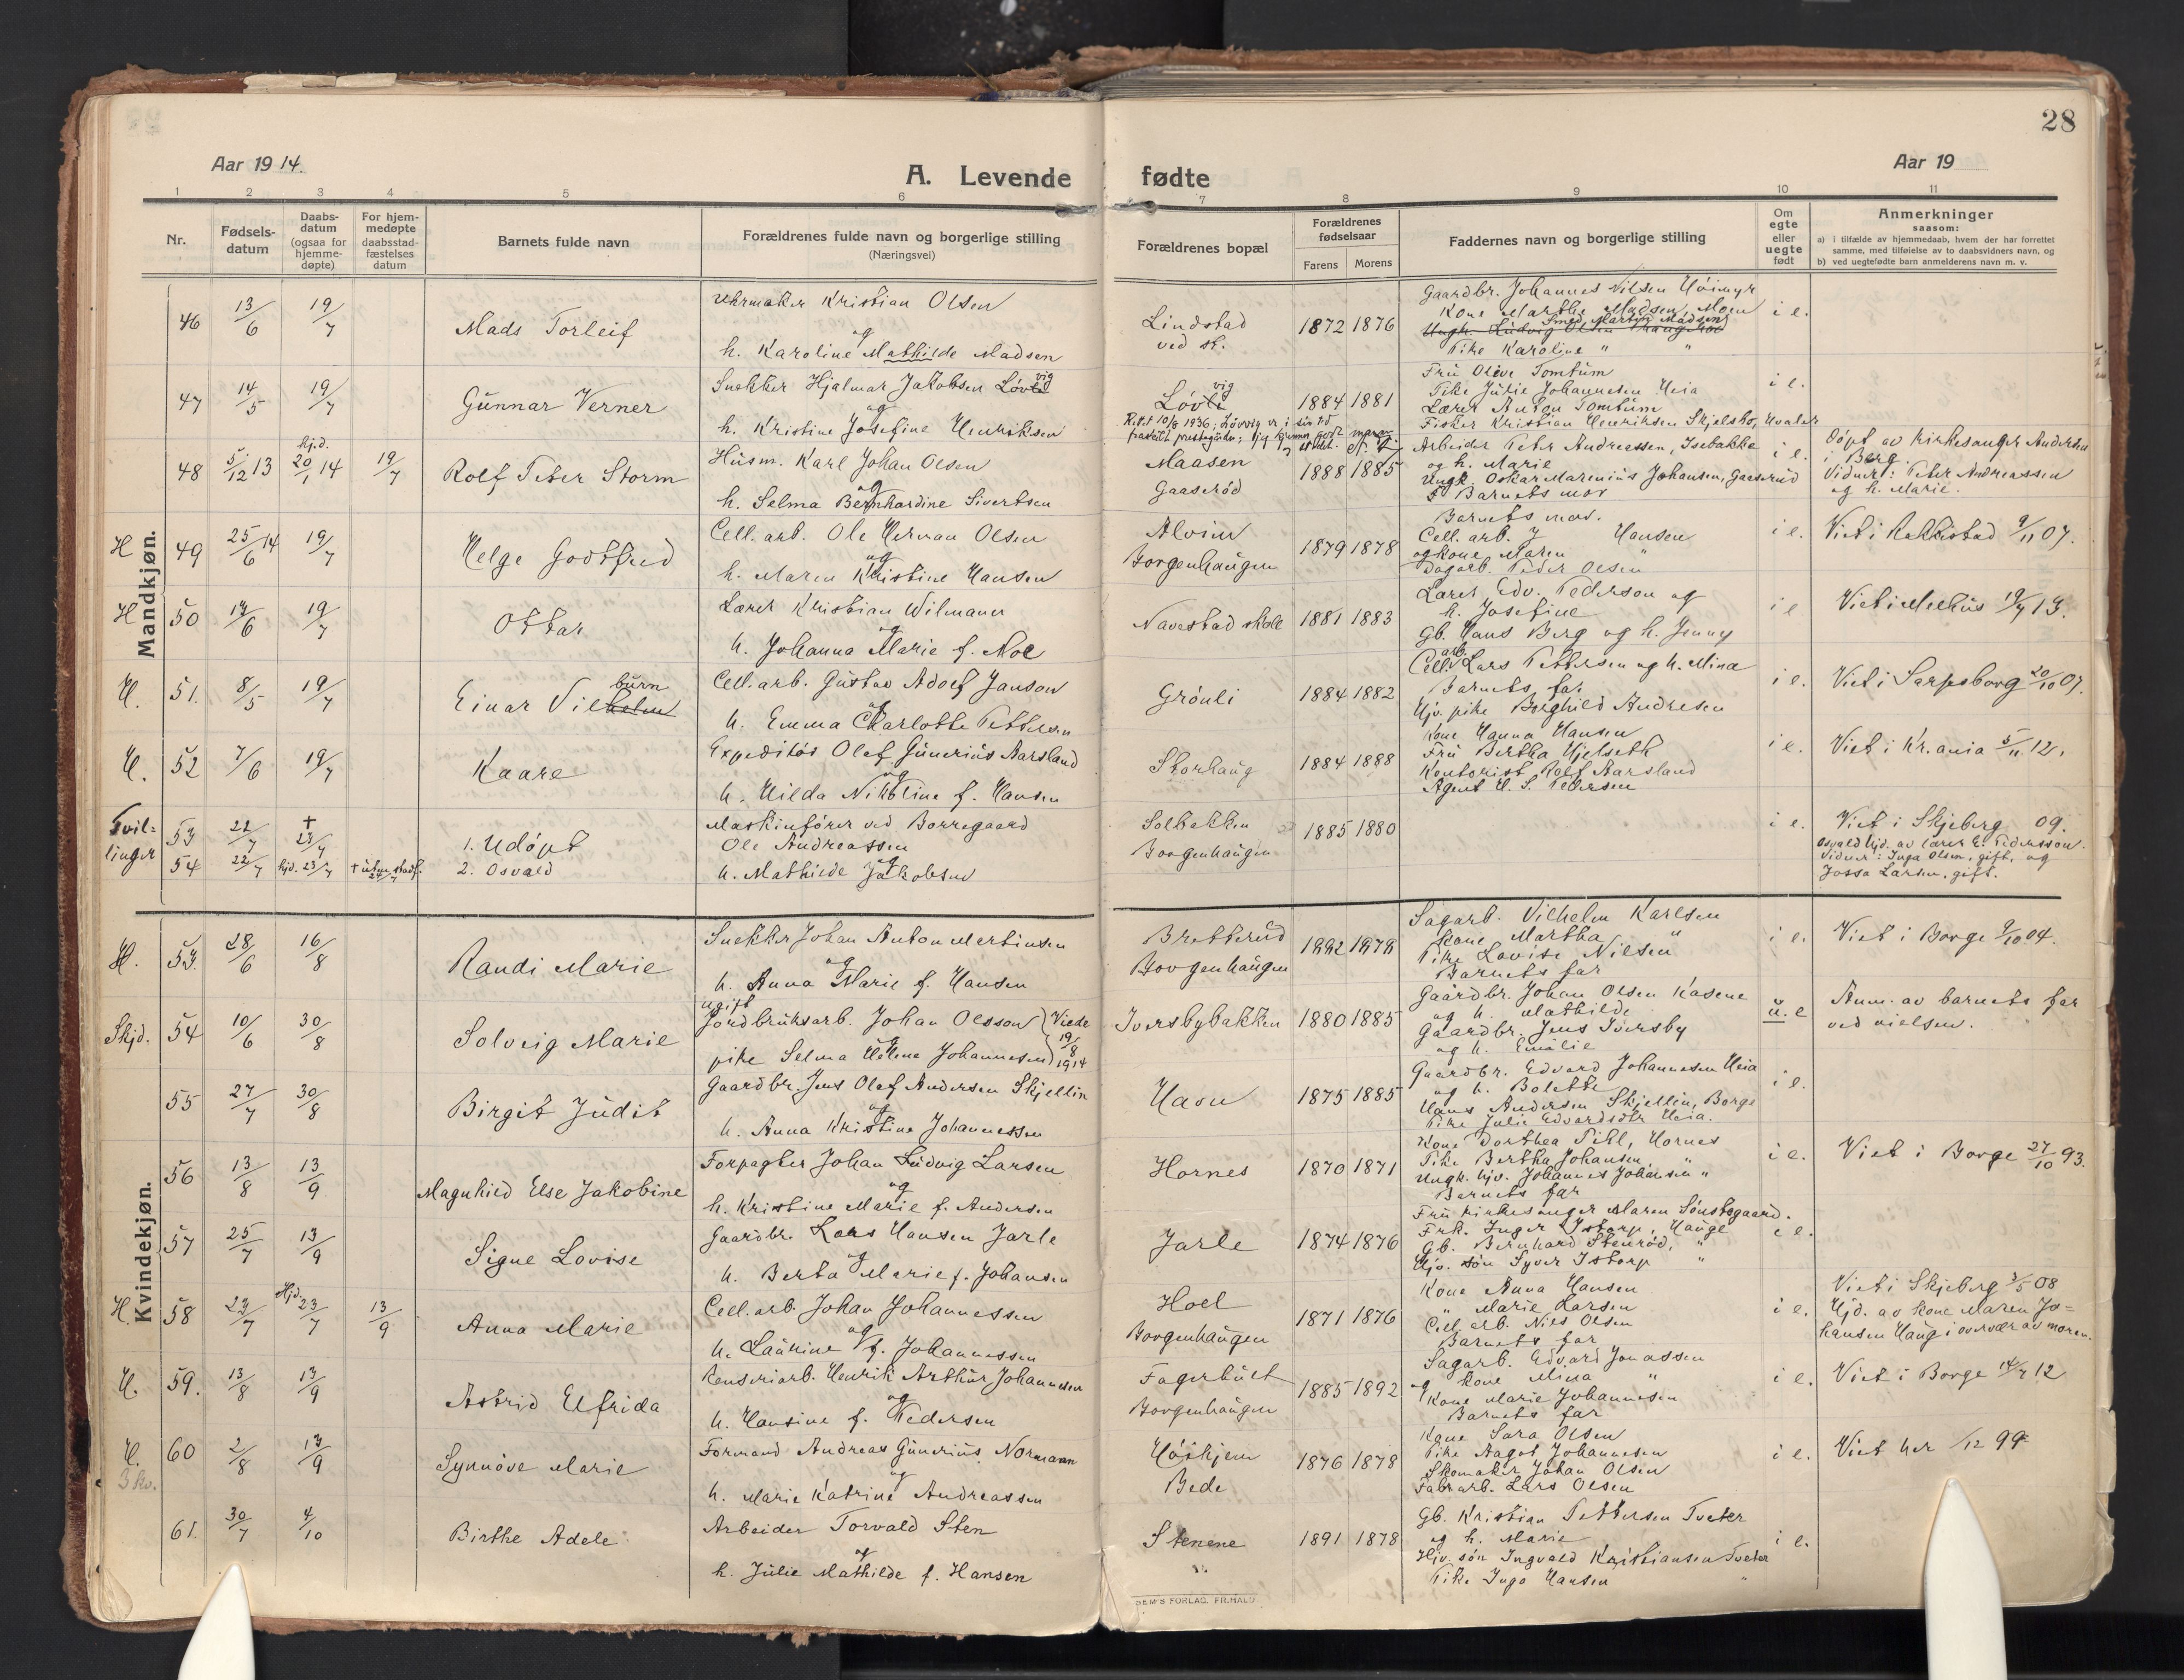 28
Aar 1914.
A. Levende fødte
Aar 19
1 2 3 4 5 6 7 8 9 10 11
Nr.
Fødsels-
datum
Daabs-
datum
(ogsaa for
hjemme-
døpte)
For hjem-
medøpte
daabsstad-
fæstelses
datum
Barnets fulde navn
Forældrenes fulde navn og borgerlige stilling
(Næringsvei)
Forældrenes bopæl
Forældrenes
fødselsaar
Farens Morens
Faddernes navn og borgerlige stilling
Om
egte
eller
uegte
født
Anmerkninger
saasom:
a) i tilfælde av hjemmedaab, hvem der har forrettet
samme, med tilføielse av to daabsvidners navn, og
b) ved uegtefødte barn anmelderens navn m. v.
Mandkjøn.
46 13/6 19/7 Mads Torleif
Uhrmaker Kristian Olsen
og
h. Karoline Mathilde Madsen
Lindstad
ved sk.
1872 1876
Gaardbr. Johannes Nilsen Høimyr
Kone Marthe Madsen, Moen
Smed Martin Madsen
Pike Karoline " "
i e.
47 14/5 19/7 Gunnar Verner
Snekker Hjalmar Jakobsen Løvvig
og
h. Kristine Josefine Henriksen
Løvvig
1884 1881
Fru Olive Tomtum
Pike Julie Johannesen Heia
Lærer Anton Tomtum
Fisker Kristian Henriksen Skjelsbo, Hvaler
i e.
48 5/12 13 hjd. 20/1 14 19/7 Rolf Peter Storm
Husm. Karl Johan Olsen
og
h. Selma Bernhardine Sivertsen
Maasen
Gaaserød
1888 1885
Arbeider Peter Andreassen, Isebakke
og h. Marie
Ungk. Oskar Marenius Johansen, Gaaserud
Barnets mor
i e.
Døpt av kirkesanger Andersen
i Berg.
Vidner: Peter Andreassen
og h. Marie.
H 49 25/6 14 19/7 Helge Godtfred
Cell. arb. Ole Herman Olsen
og
h. Maren Kristine Hansen
Alvim
Borgenhaugen
1879 1878
Barnets mor.
Cell. arb. J Hansen
og kone Maren "
Dagarb. Peder Olsen
i e.
Viet i Rakkestad 9/11 07.
H 50 14/6 19/7 Ottar
Lærer Kristian Wilmann
og
h. Johanna Marie f. Noe
Navestad skole
1881 1883
Lærer Edv. Pederson og
h. Josefine
Gb. Hans Berg og h. Jenny
i e
Viet i Melhus 19/7 13.
H. 51. 8/5 19/7 Einar Vilburn
Cell. arb. Gustav Adolf Janson
og
h. Emma Charlotte Pettersen
Grønli
1884 1882
Cell. arb. Lars Pettersen og h. Mina
Barnets far.
Hjv. pike Borghild Andresen
i e.
Viet i Sarpsborg 20/10 07.
H. 52 7/6 19/7 Kaare
Expeditør Olaf Gunerius Aarsland
og
h. Hilda Nikoline f. Hansen
Storhaug
1884 1888
Kone Hanna Hansen
Fru Bertha Hjelseth
Kontorist Rolf Aarsland
Agent H. S. Pedersen
i e.
Viet i Kr.ania 5/11 12.
Tvil-
linger
53 22/7 † 23/7 1. Udøpt
54 22/7 hjd. 23/7 2. Osvald
Maskinfører ved Borregaard
Ole Andreassen
og
h. Mathilde Jakobsen
Solbakken
Borgenhaugen
1885 1880
i e.
Viet i Skjeberg 09.
Osvald hjd. av lærer E. Pedersson.
Vidner: Inga Olsen, gift, og
Jossa Larsen, gift.
Kvindekjøn.
H. 53. 28/6 16/8 Randi Marie
Snekker Johan Anton Martinsen
og
h. Anna Marie f. Hansen
Bretterud
Borgenhaugen
1882 1878
Sagarb. Vilhelm Karlsen
Kone Martha "
Pike Lovise Nilsen
Barnets far
i e.
Viet i Borge 9/10 04.
Skjd. 54 10/6 30/8 Solveig Marie
ugift
Jordbruksarb. Johan Olsson
og
pike Selma Helene Johannesen
Viede
19/8
1914
Iversbybakken
1880 1885
Gaardbr. Johan Olsen Kasene
og h. Mathilde
Gaardbr. Jens Iversby
og h. Emilie
u. e
Anm. av barnets far
ved vielsen.
55 27/7 30/8 Birgit Judit
Gaardbr. Jens Olaf Andersen Skjellin
og
h. Anna Kristine Johannessen
Havn
1875 1885
Gaardbr. Edvard Johannesen Heia
og h. Bolette
Hans Andersen Skjellin, Borge
Pike Julie Edvardsdtr Heia.
i e.
56 13/8 13/9 Magnhild Else Jakobine
Forpagter Johan Ludvig Larsen
og
h. Kristine Marie f. Andersen
Hornes
1870 1871
Kone Dorthea Pihl, Hornes
Pike Bertha Johansen "
Ungk. hjv. Johannes Johansen "
Barnets far
i e.
Viet i Borge 27/10 93.
57 25/7 13/9 Signe Lovise
Gaardbr. Lars Hansen Jarle
og
h. Berta Marie f. Johansen
Jarle
1874 1876
Fru kirkesanger Maren Sønstegaard.
Frk. Inger Istorp, Hauge
Gb. Bernhard Stenrød, "
Hjv. søn Syver Istorp "
i e.
H. 58 23/7 Hjd. 23/7 13/9 Anna Marie
Cell. arb. Johan Johannessen
og
h. Laurine f. Johannessen
Hoel
Borgenhaugen
1871 1876
Kone Anna Hansen
" Marie Larsen
Cell. arb. Nils Olsen
Barnets far
i e.
Viet i Skjeberg 3/5 08
Hjd. av kone Maren Jo=
hansen Haug i overvær av moren.
H. 59. 13/8 13/9 Astrid Elfrida
Renseriarb. Henrik Arthur Johannesen
og
h. Hansine f. Pedersen
Fagerhult
Borgenhaugen
1885 1892
Sagarb. Edvard Jonassen
og kone Mina "
Kone Marie Johannesen
Barnets far
i e.
Viet i Borge 14/7 12
H. 60 2/8 13/9 Synnöve Marie
3 kv.
Formand Andreas Gunerius Normann
og
h. Marie Katrine Andreassen
Høskjem
Bede
1876 1878
Kone Sara Olsen
Pike Aagot Johannesen
Skomaker Johan Olsen
Fabr. arb. Lars Olsen
i e.
Viet her /12 99
61. 30/7 4/10 Birthe Adele
Arbeider Torvald Sten
og
h. Julie Mathilde f. Hansen
Stenene
1891 1878
Gb. Kristian Pettersen Tveter
og h. Marie
Hjv. søn Ingvald Kristiansen Tveter
Pike Inga Hansen "
i e.
SEM'S FORLAG, FR.HALD